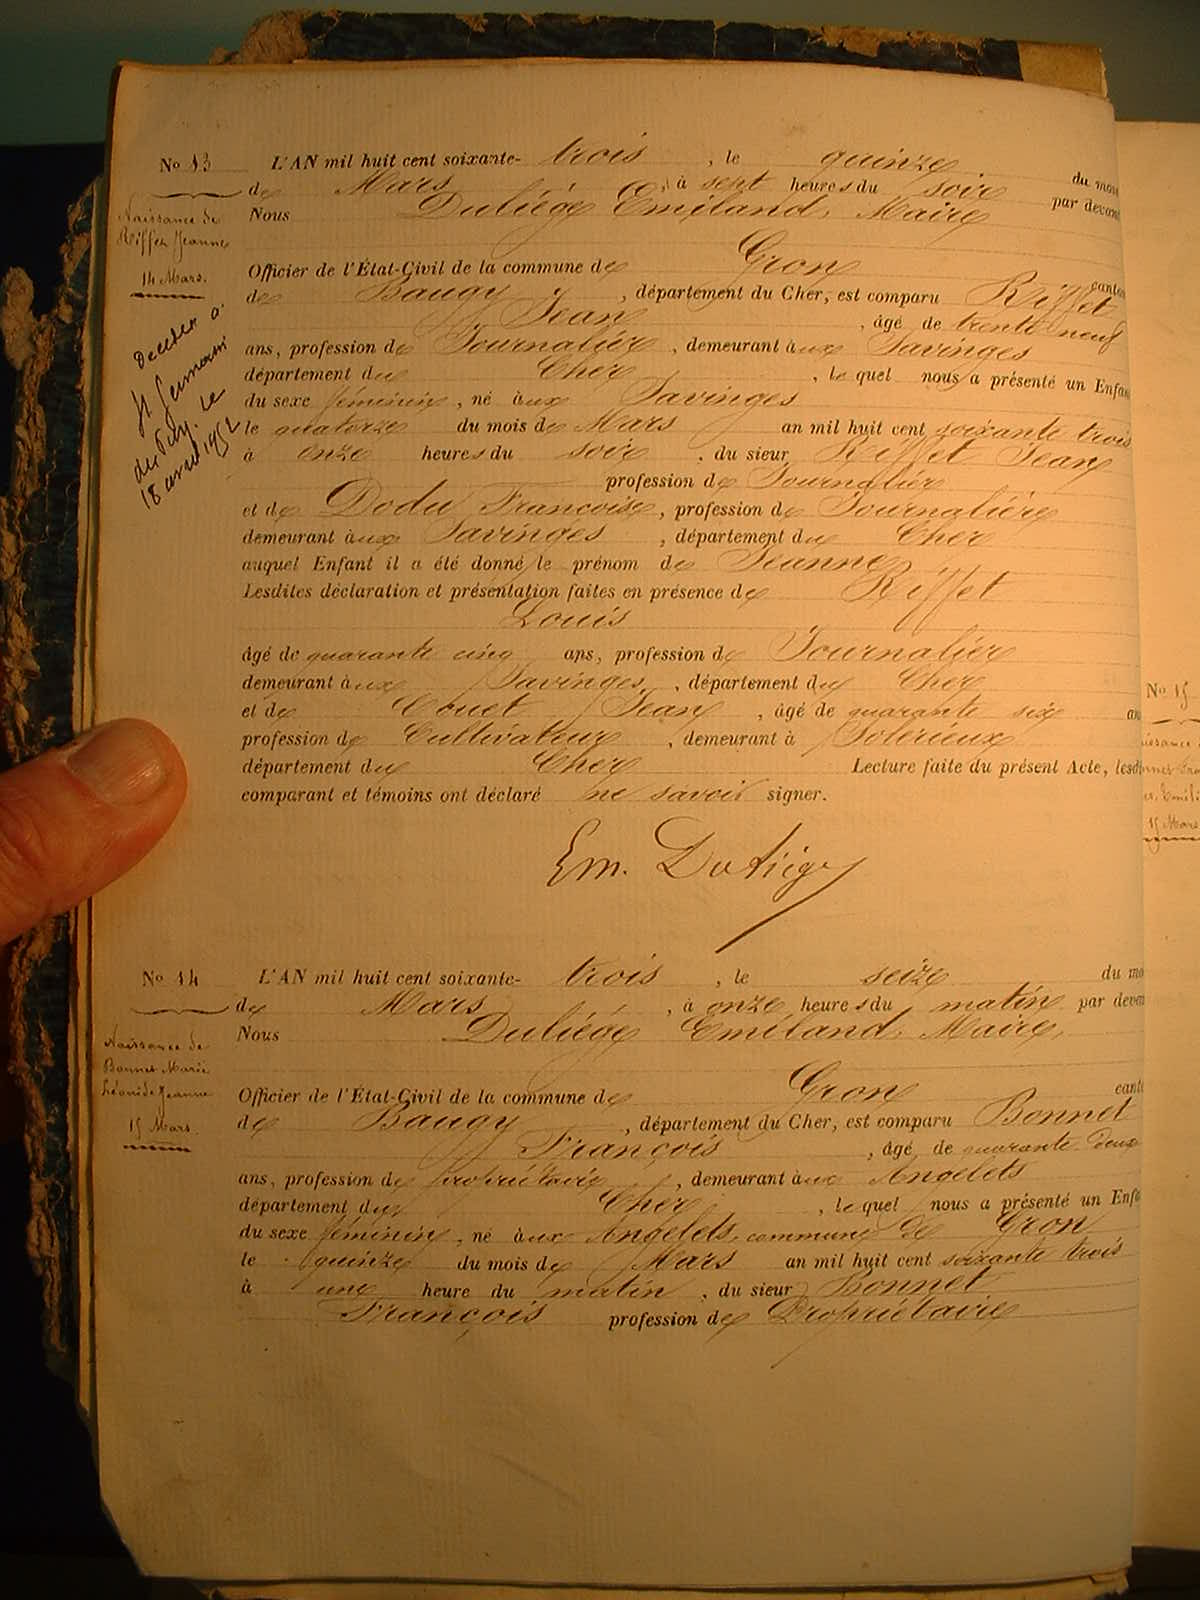 No 13
L'AN mil huit cent soixante- trois , le quinze du mois
de Mars , à sept heures du soir par devant
Nous Duliége Emiland, Maire
Naissance de
Riffet Jeanne
14 Mars.
Officier de l'État-Civil de la commune de Gron canton
de Baugy , département du Cher, est comparu Riffet
Jean , âgé de trente neuf
ans, profession de Journalier , demeurant aux Savinges
département du Cher , lequel nous a présenté un Enfant
du sexe féminin , né aux Savinges
le quatorze du mois de Mars an mil huit cent soixante trois
à onze heures du soir , du sieur Riffet Jean
profession de Journalier
et de Dodu Francoise , profession de Journalière
demeurant aux Savinges , département du Cher
auquel Enfant il a été donné le prénom de Jeanne
Lesdites déclaration et présentation faites en présence de Riffet
Louis
âgé de quarante cinq ans, profession de Journalier
demeurant aux Savinges , département du Cher
et de Couet Jean , âgé de quarante six ans
profession de Cultivateur , demeurant à Solerieux
département du Cher Lecture faite du présent Acte, lesd
comparant et témoins ont déclaré ne savoir signer.
Em. Duliége
Décédée à
St Germain
du Puy. le
18 avril 1952
No 14
L'AN mil huit cent soixante- trois , le seize du mo
de Mars , à onze heures du matin par devan
Nous Duliége Emiland, Maire,
Naissance de
Bonnet Marie
Léonide Jeanne
15 Mars.
Officier de l'État-Civil de la commune de Gron canto
de Baugy , département du Cher, est comparu Bonnet
François , âgé de quarante deux
ans, profession de propriétaire , demeurant aux Angelets
département du Cher , lequel nous a présenté un Enfa
du sexe féminin , né aux Angelets, commune de Gron
le quinze du mois de Mars an mil huit cent soixante trois
à une heure du matin , du sieur Bonnet
François profession de Propriétaire
No 15
15 Mars